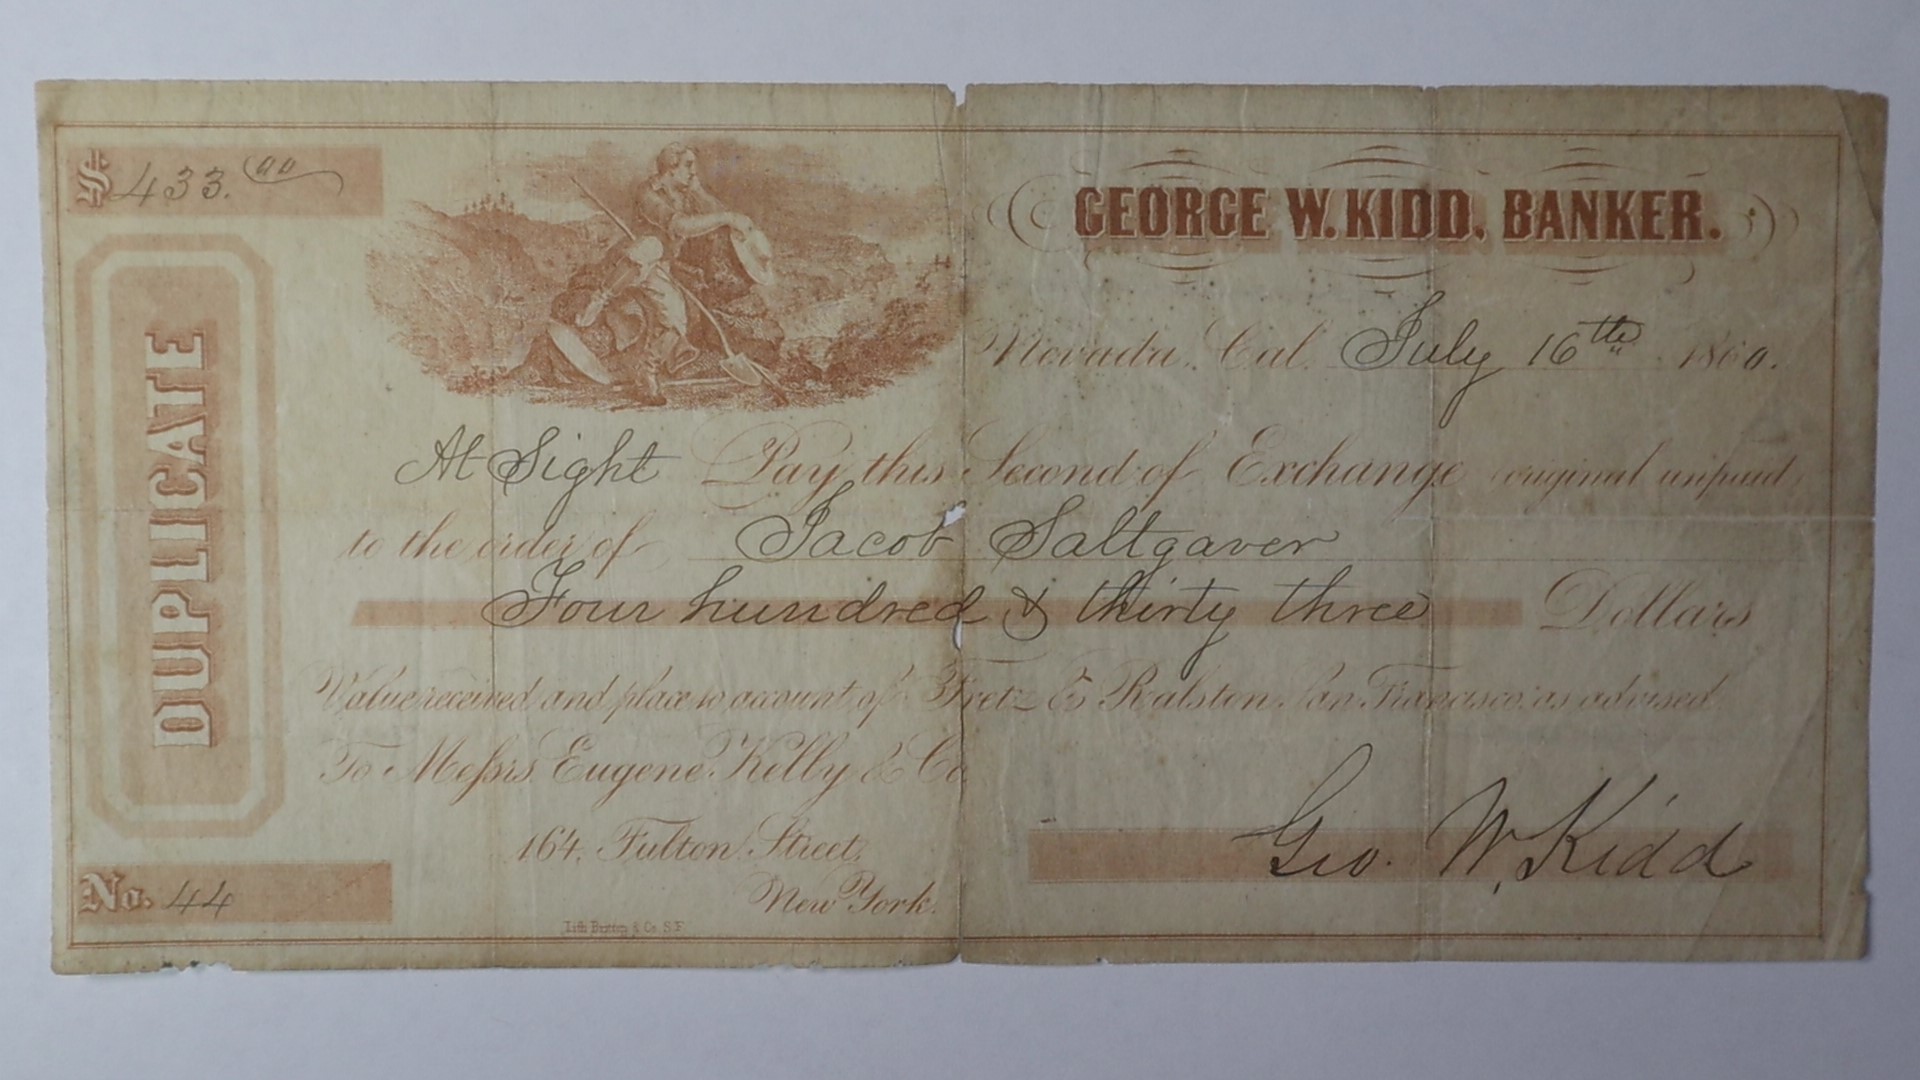 $ 433.00
GEORGE W. KIDD, BANKER.
Nevada, Cal. July 16th 1860.
DUPLICATE
At Sight Pay this Second of Exchange (original unpaid)
to the order of Jacob Saltgaver
Four hundred & thirty three Dollars
Value received and place to account of Fretz & Ralston San Francisco, as advised
To Messrs. Eugene Kelly & Co.
164, Fulton Street,
New York.
Geo. W. Kidd
No. 44
Lith. Britton & Co. S.F.